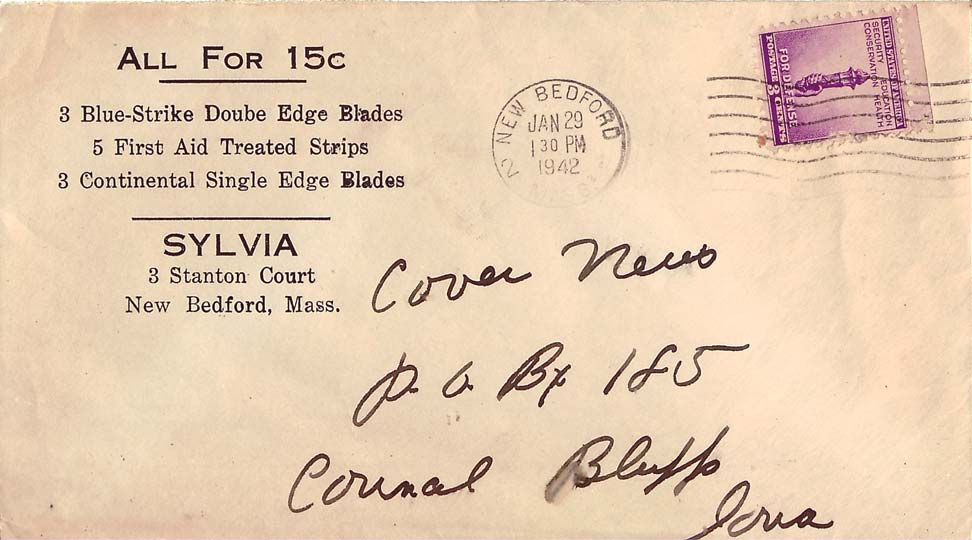 ALL FOR 15c
3 Blue-Strike Doube Edge Blades
5 First Aid Treated Strips
3 Continental Single Edge Blades
SYLVIA
3 Stanton Court
New Bedford, Mass.
NEW BEDFORD
JAN 29
1 30 PM
1942
2
UNITED STATES OF AMERICA
SECURITY EDUCATION
CONSERVATION HEALTH
FOR DEFENSE
POSTAGE 3 CENTS
Cover News
P.O. Bx 185
Council Bluffs
Iowa